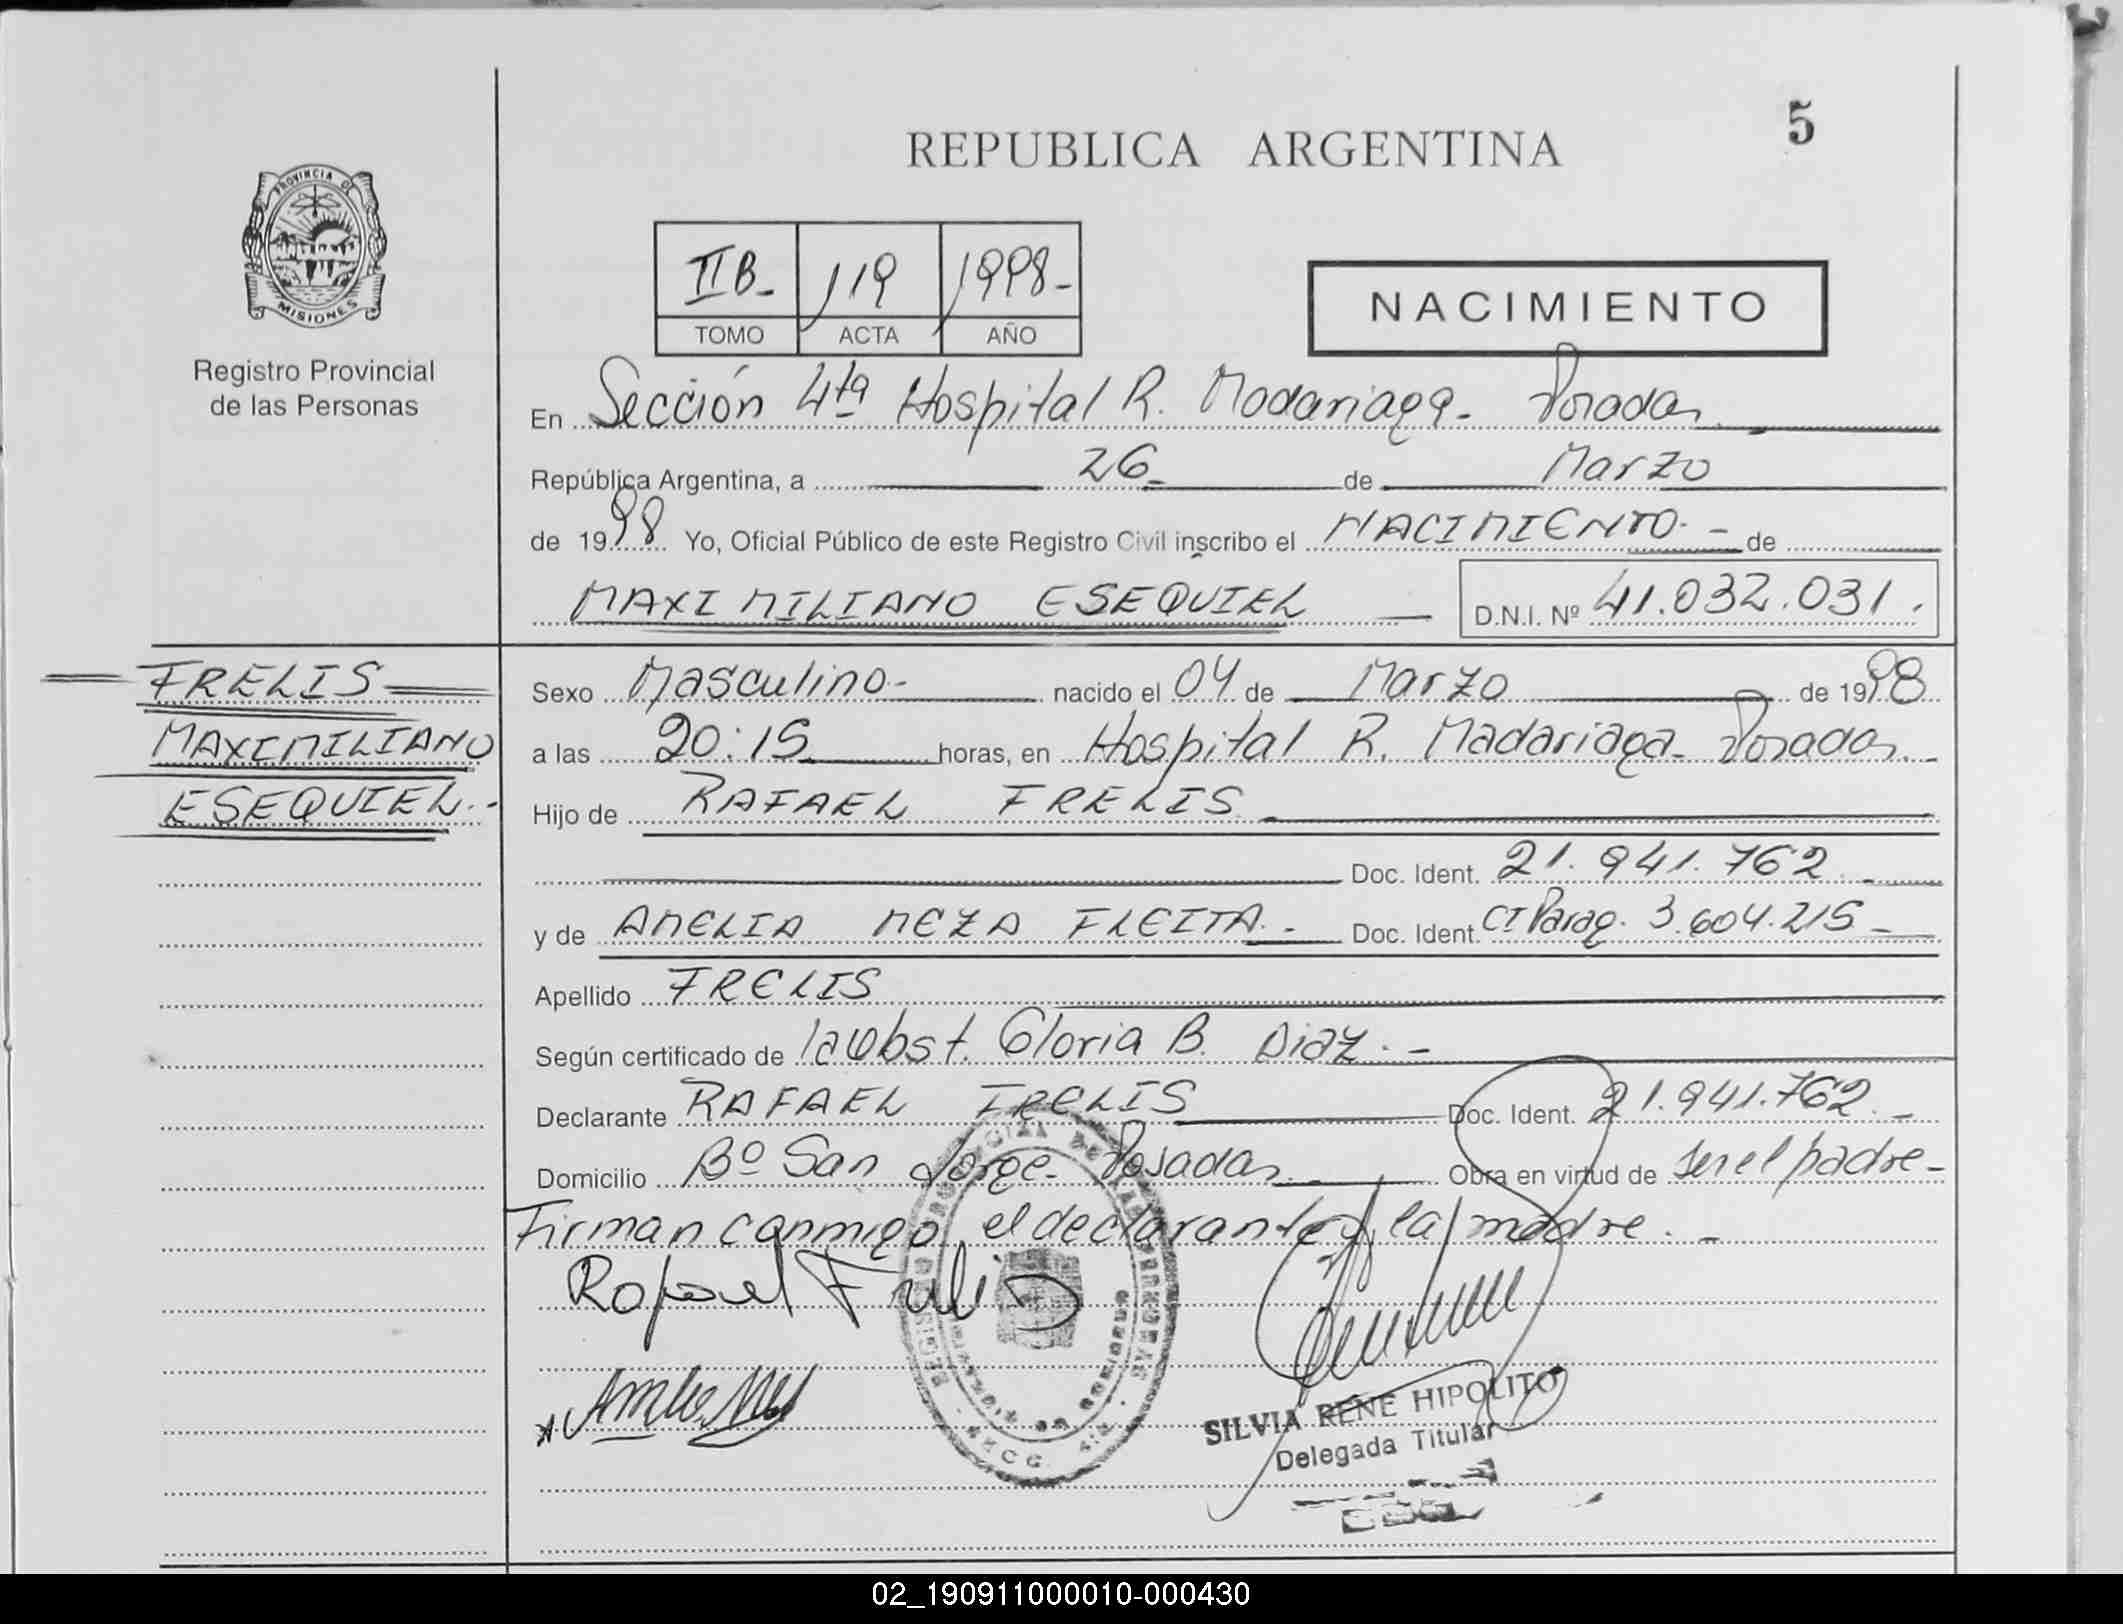 5
REPUBLICA ARGENTINA
PROVINCIA DE
MISIONES
Registro Provincial
de las Personas
IIB- 119 1998-
TOMO ACTA AÑO
NACIMIENTO
En Sección 4ta Hospital R. Madariaga- Posadas
República Argentina, a 26 de Marzo
de 1998 Yo, Oficial Público de este Registro Civil inscribo el NACIMIENTO.- de
MAXIMILIANO ESEQUIEL - D.N.I. Nº 41.032.031.
FRELIS
MAXIMILIANO
ESEQUIEL.-
Sexo Masculino- nacido el 04 de Marzo de 1998
a las 20:15 horas, en Hospital R. Madariaga- Posadas.-
Hijo de RAFAEL FRELIS
Doc. Ident. 21.941.762.-
y de AMELIA MEZA FLEITA.- Doc. Ident. CI Parag. 3.604.215-
Apellido FRELIS
Según certificado de Gloria B. Diaz.-
Declarante RAFAEL FRELIS Doc. Ident. 21.941.762.-
Domicilio Bº San Jorge- Posadas Obra en virtud de ser el padre-
Firman conmigo, el declarante y la madre.-
Rafael Frelis
SILVIA RENE HIPOLITO
Delegada Titular
02_190911000010-000430